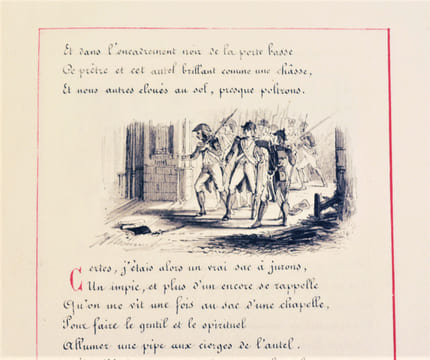 Et dans l'encadrement noir de la porte basse
Ce prêtre et cet autel brillant comme une châsse,
Et nous autres cloués au sol, presque poltrons.
Certes, j'étais alors un vrai sac à jurons,
Un impie, et plus d'un encore se rappelle
Qu'on me vit une fois au sac d'une chapelle,
Pour faire le gentil et le spirituel
Allumer une pipe aux cierges de l'autel.